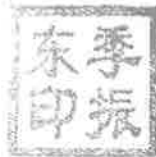 季振
东印